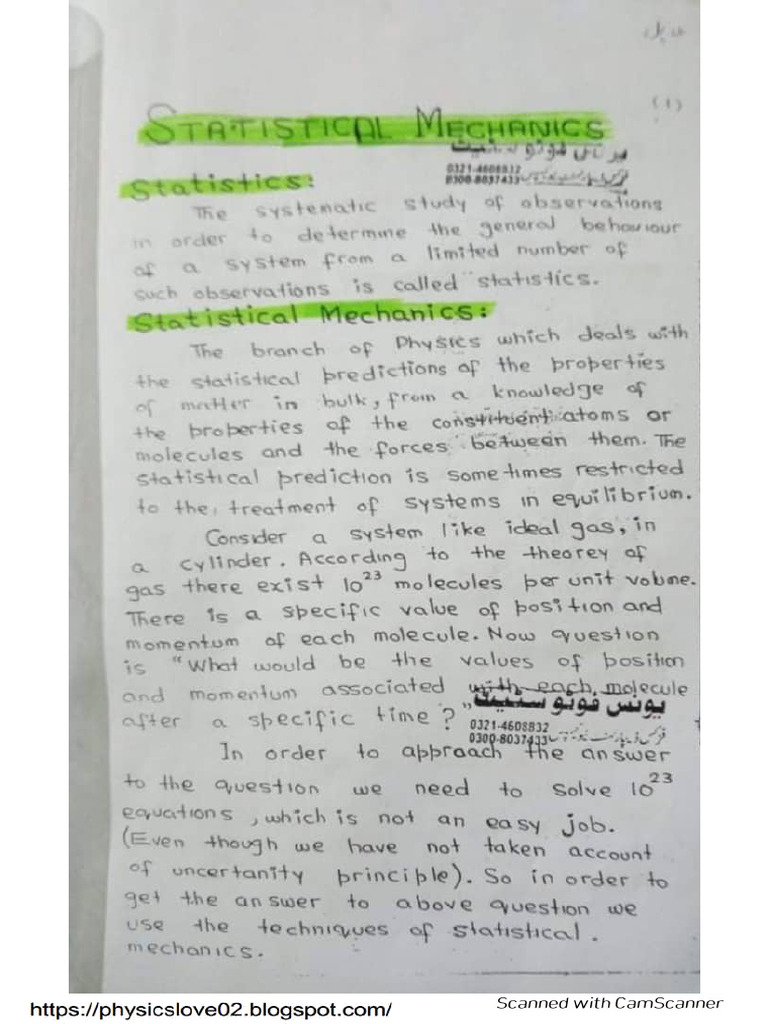 (1)
STATISTICAL MECHANICS
یونس فوٹو سٹیٹ
0321-4608832
0300-8037433
Statistics:
The systematic study of observations
in order to determine the general behaviour
of a system from a limited number of
such observations is called statistics.
Statistical Mechanics:
The branch of Physics which deals with
the statistical predictions of the properties
of matter in bulk, from a knowledge of
the properties of the constituent atoms or
molecules and the forces between them. The
statistical prediction is sometimes restricted
to the treatment of systems in equilibrium.
Consider a system like ideal gas, in
a cylinder. According to the theorey of
gas there exist 10²³ molecules per unit volume.
There is a specific value of position and
momentum of each molecule. Now question
is "What would be the values of position
and momentum associated with each molecule
after a specific time?"
یونس فوٹو سٹیٹ
0321-4608832
0300-8037433
In order to approach the answer
to the question we need to solve 10²³
equations, which is not an easy job.
(Even though we have not taken account
of uncertanity principle). So in order to
get the answer to above question we
use the techniques of statistical.
mechanics.
https://physicslove02.blogspot.com/
Scanned with CamScanner